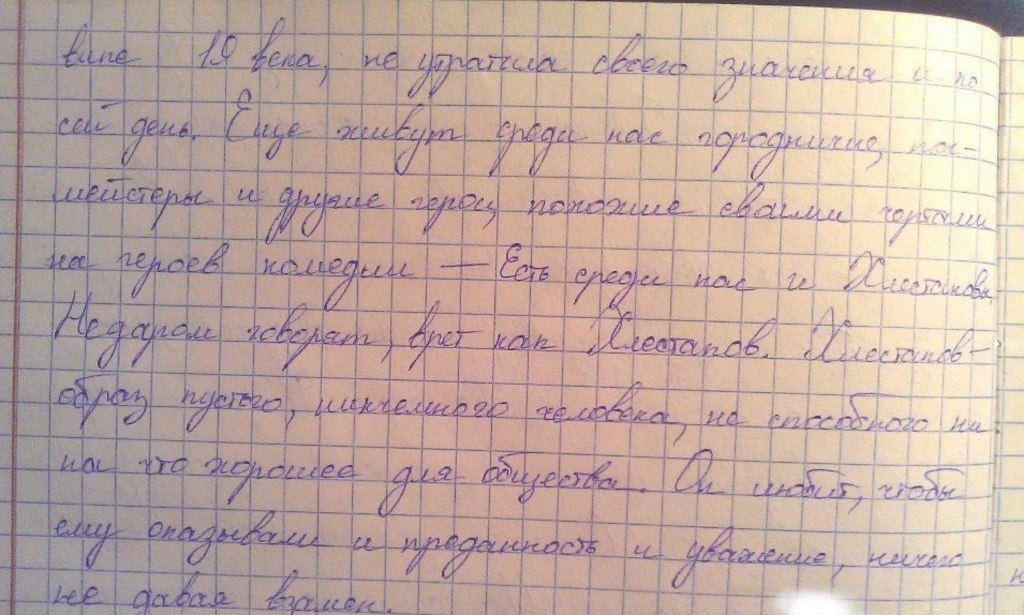 вине 19 века, не утратила своего значения и по
сей день. Еще живут среди нас городничие, поч-
мейстеры и другие герои, похожие своими чертами
на героев комедии — Есть среди нас и Хлестаковы
Недаром говорят, врет как Хлестаков. Хлестаков-
образ пустого, никчемного человека, не способного ни
на что хорошее для общества. Он любит, чтобы
ему оказывали и преданность и уважение, ничего
не давая взамен.